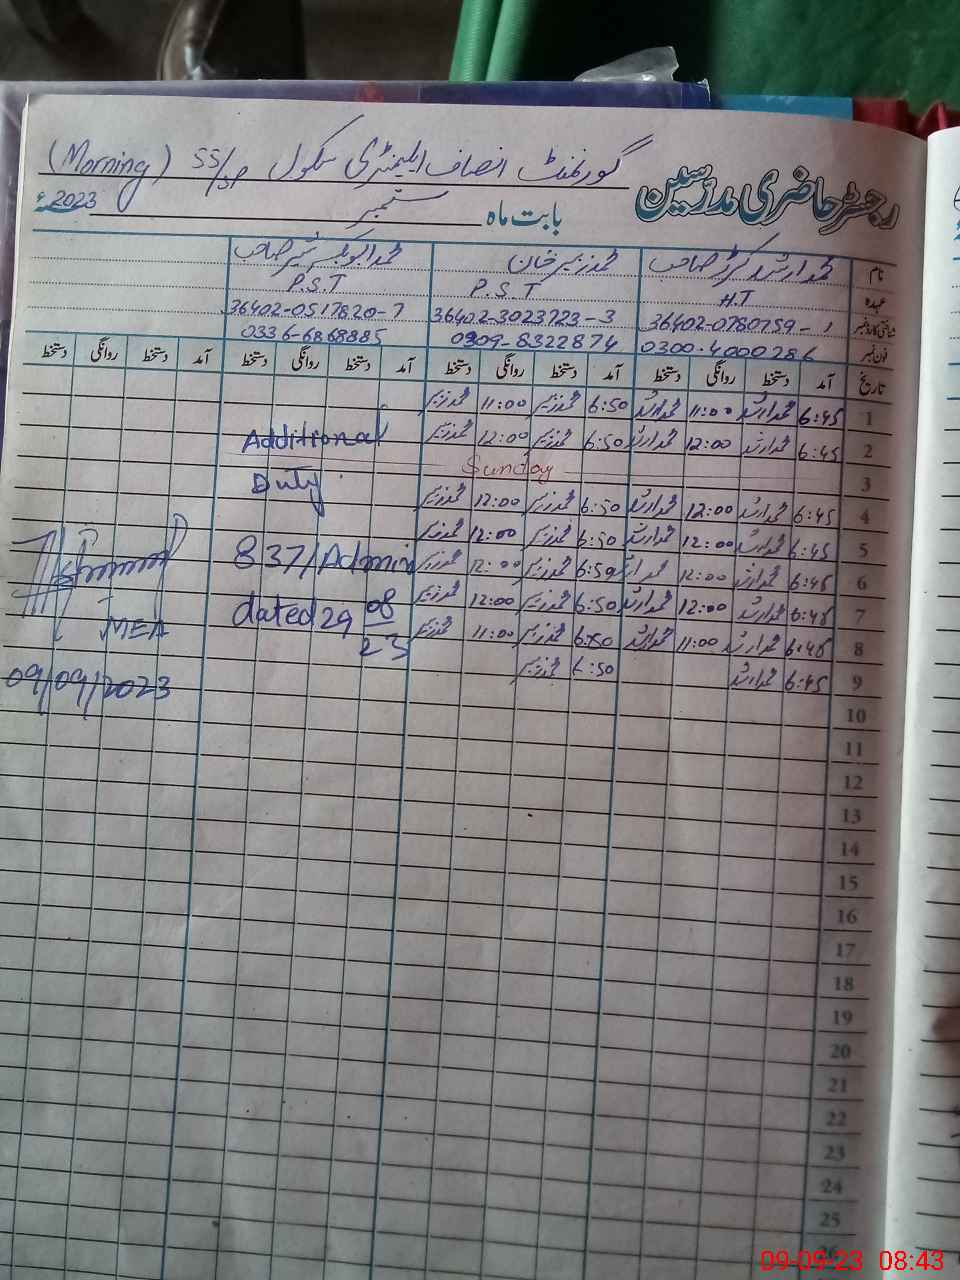 رجسٹر حاضری مدرسین گورنمنٹ انصاف ایلیمنٹری سکول 55/SP (Morning)
بابت ماہ ستمبر 2023ء
نام محمد ارشد صاحب محمد زبیر خان محمد ابوبکر صاحب
عہدہ H.T P.S.T P.S.T
شناختی کارڈ نمبر 36402-0780759-1 36402-3023723-3 36402-0517820-7
فون نمبر 0300-4000286 0309-8322874 0336-6868885
تاریخ آمد دستخط روانگی دستخط آمد دستخط روانگی دستخط آمد دستخط روانگی دستخط آمد دستخط روانگی دستخط
1 6:45 محمد ارشد 11:00 محمد ارشد 6:50 محمد زبیر 11:00 محمد زبیر
2 6:45 محمد ارشد 12:00 محمد ارشد 6:50 محمد زبیر 12:00 محمد زبیر
3 Sunday
4 6:45 محمد ارشد 12:00 محمد ارشد 6:50 محمد زبیر 12:00 محمد زبیر
5 6:45 محمد ارشد 12:00 محمد ارشد 6:50 محمد زبیر 12:00 محمد زبیر
6 6:45 محمد ارشد 12:00 محمد ارشد 6:50 محمد زبیر 12:00 محمد زبیر
7 6:45 محمد ارشد 12:00 محمد ارشد 6:50 محمد زبیر 12:00 محمد زبیر
8 6:45 محمد ارشد 11:00 محمد ارشد 6:50 محمد زبیر 11:00 محمد زبیر
9 6:45 محمد ارشد 6:50 محمد زبیر
Additional
Duty
837/Admin
dated 29 08
23
MEA
09/09/2023
10
11
12
13
14
15
16
17
18
19
20
21
22
23
24
25
26
09-09-23 08:43